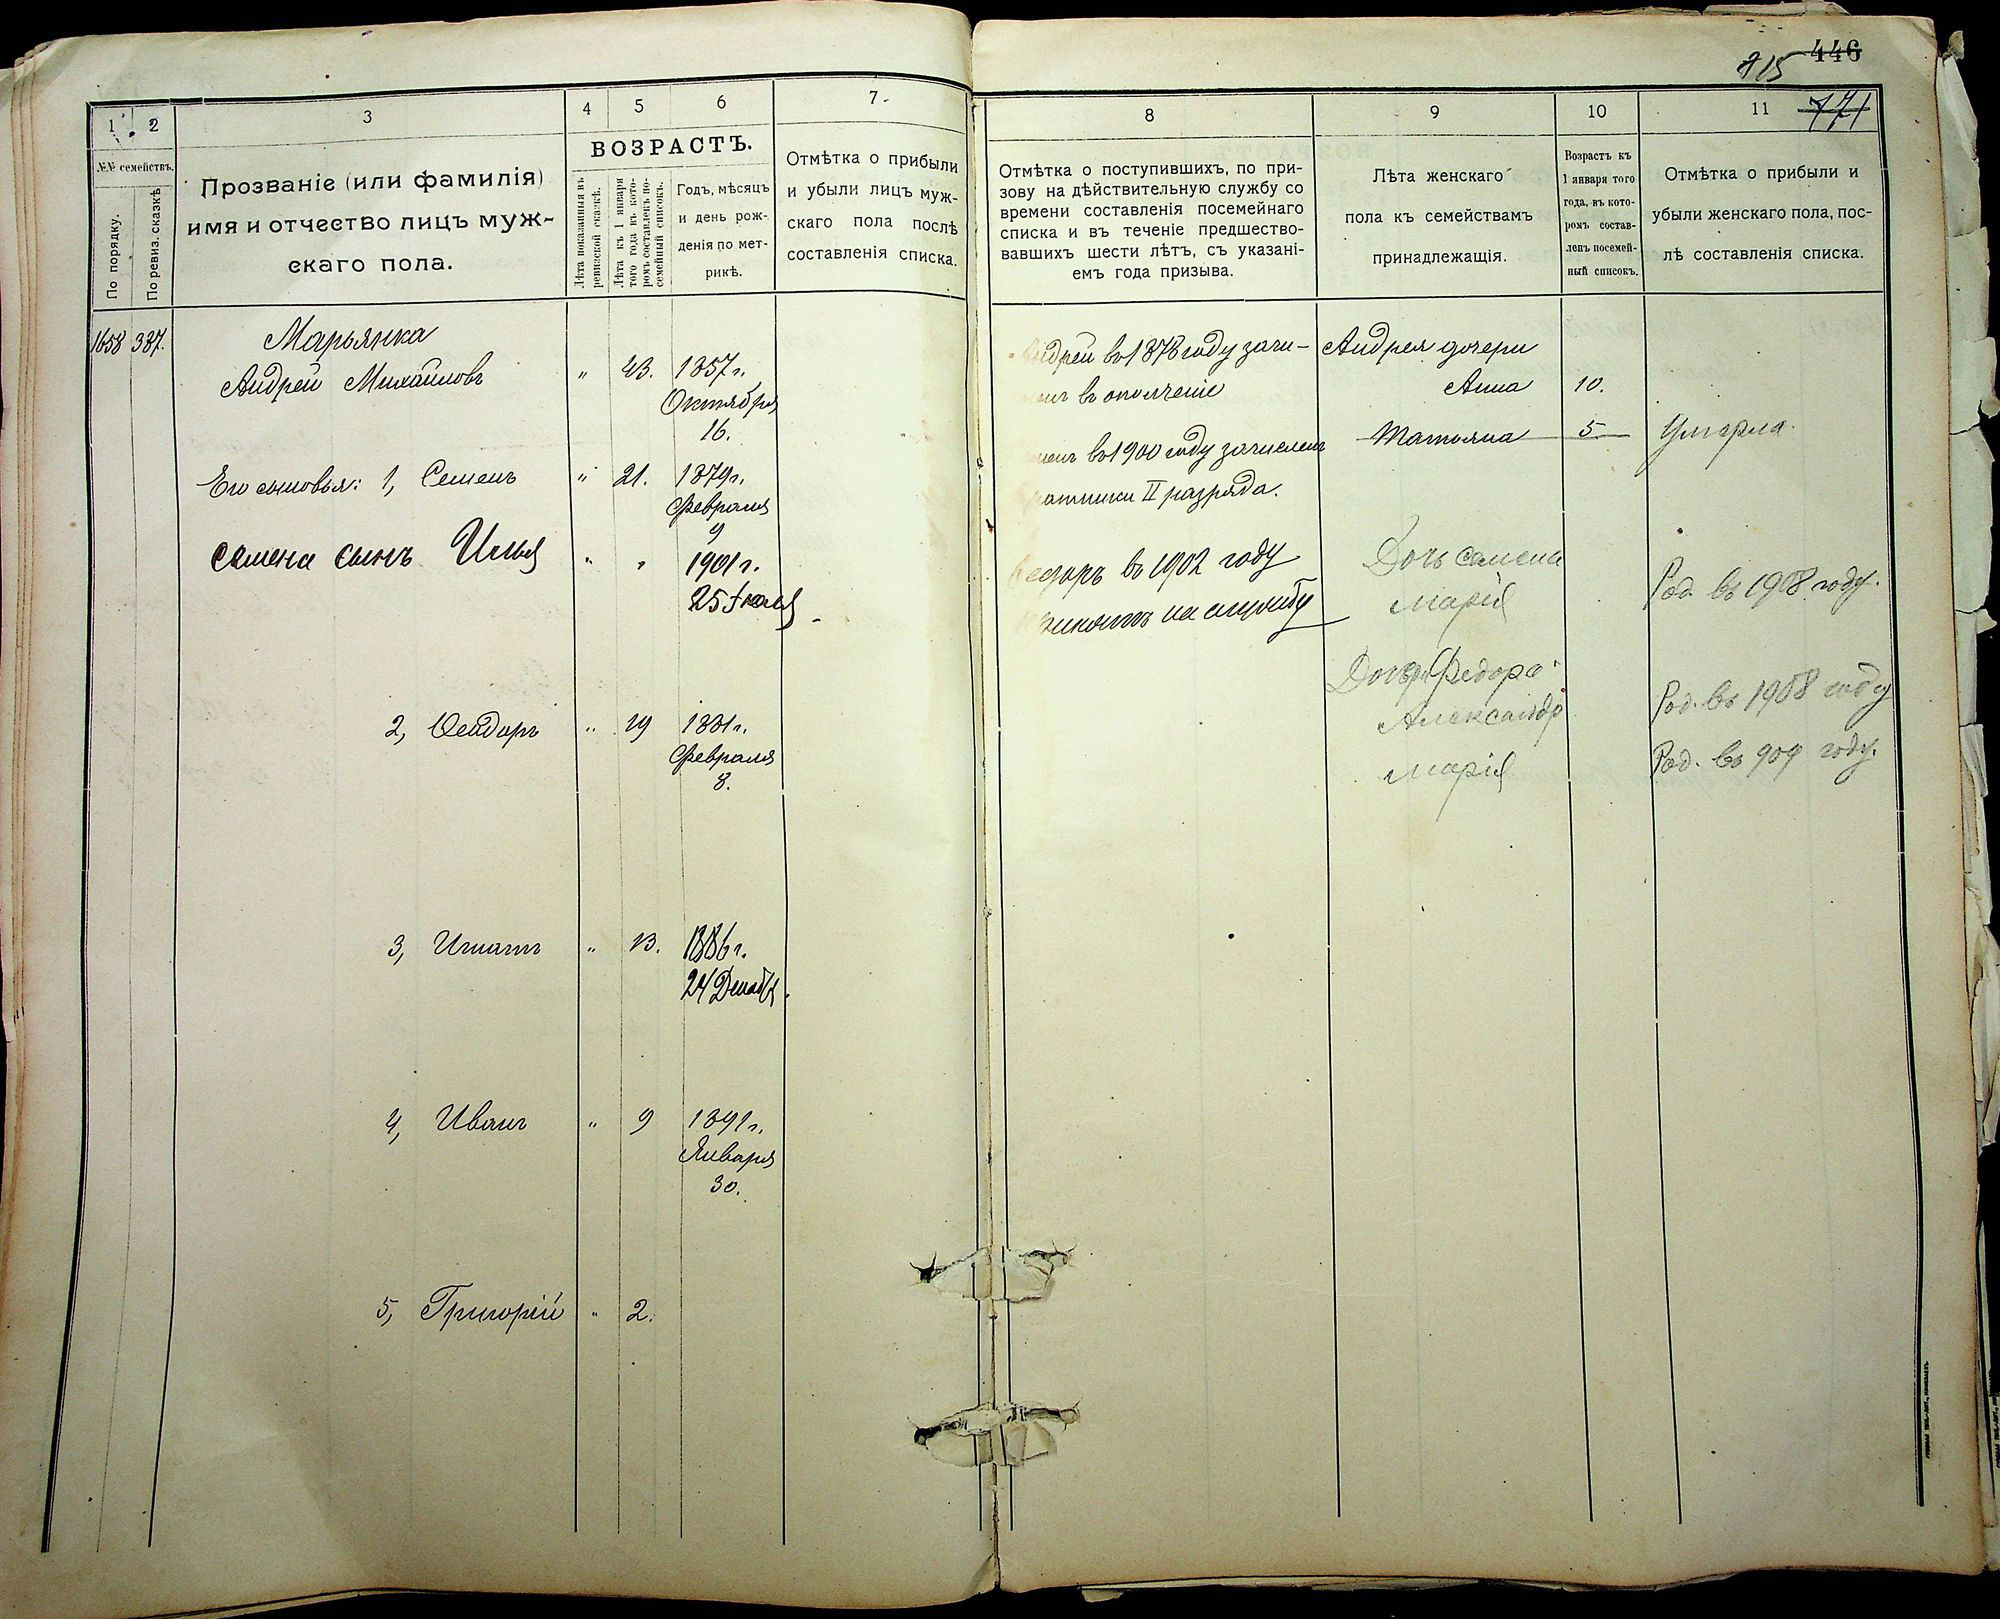 446
815
171
1
2
3
4
5
6
7.
8
9
10
11
№№ семействъ.
По порядку.
По ревиз. сказкѣ
Прозваніе (или фамилія)
имя и отчество лицъ муж-
скаго пола.
ВОЗРАСТЪ.
Лѣта показанныя въ
ревизской сказкѣ.
Лѣта къ 1 января
того года въ кото-
ромъ составленъ по-
семейный списокъ.
Годъ, мѣсяцъ
и день рож-
денія по мет-
рикѣ.
Отмѣтка о прибыли
и убыли лицъ муж-
скаго пола послѣ
составленія списка.
Отмѣтка о поступившихъ, по при-
зову на дѣйствительную службу со
времени составленія посемейнаго
списка и въ теченіе предшество-
вавшихъ шести лѣтъ, съ указані-
емъ года призыва.
Лѣта женскаго
пола къ семействамъ
принадлежащія.
Возрастъ къ
1 января того
года, въ кото-
ромъ состав-
ленъ посемей-
ный списокъ.
Отмѣтка о прибыли и
убыли женскаго пола, пос-
лѣ составленія списка.
1658 387. Марьянка
Андрей Михайловъ " 43. 1857 г.
Октября
16.
Его сыновья: 1, Семенъ " 21. 1879 г.
Февраля
9
Семена сынъ Илья " " 1901 г.
25 Іюля
2, Ѳеодоръ " 19 1881 г.
Февраля
8.
3, Игнатъ " 13. 1886 г.
24 Декаб
4, Иванъ " 9 1891 г.
Января
30.
5, Григорій " 2.
Андрей въ 1878 году зачи-
въ ополченіе
въ 1900 году зачисленъ
ратники II разряда.
Ѳедоръ въ 1902 году
принятъ на службу
Андрея дочери
Анна 10.
Татьяна 5 Умерла.
Дочь Семена
Марія Род. въ 1908 году.
Дочери Федора
Александра Род. въ 1908 году
Марія Род. въ 909 году.